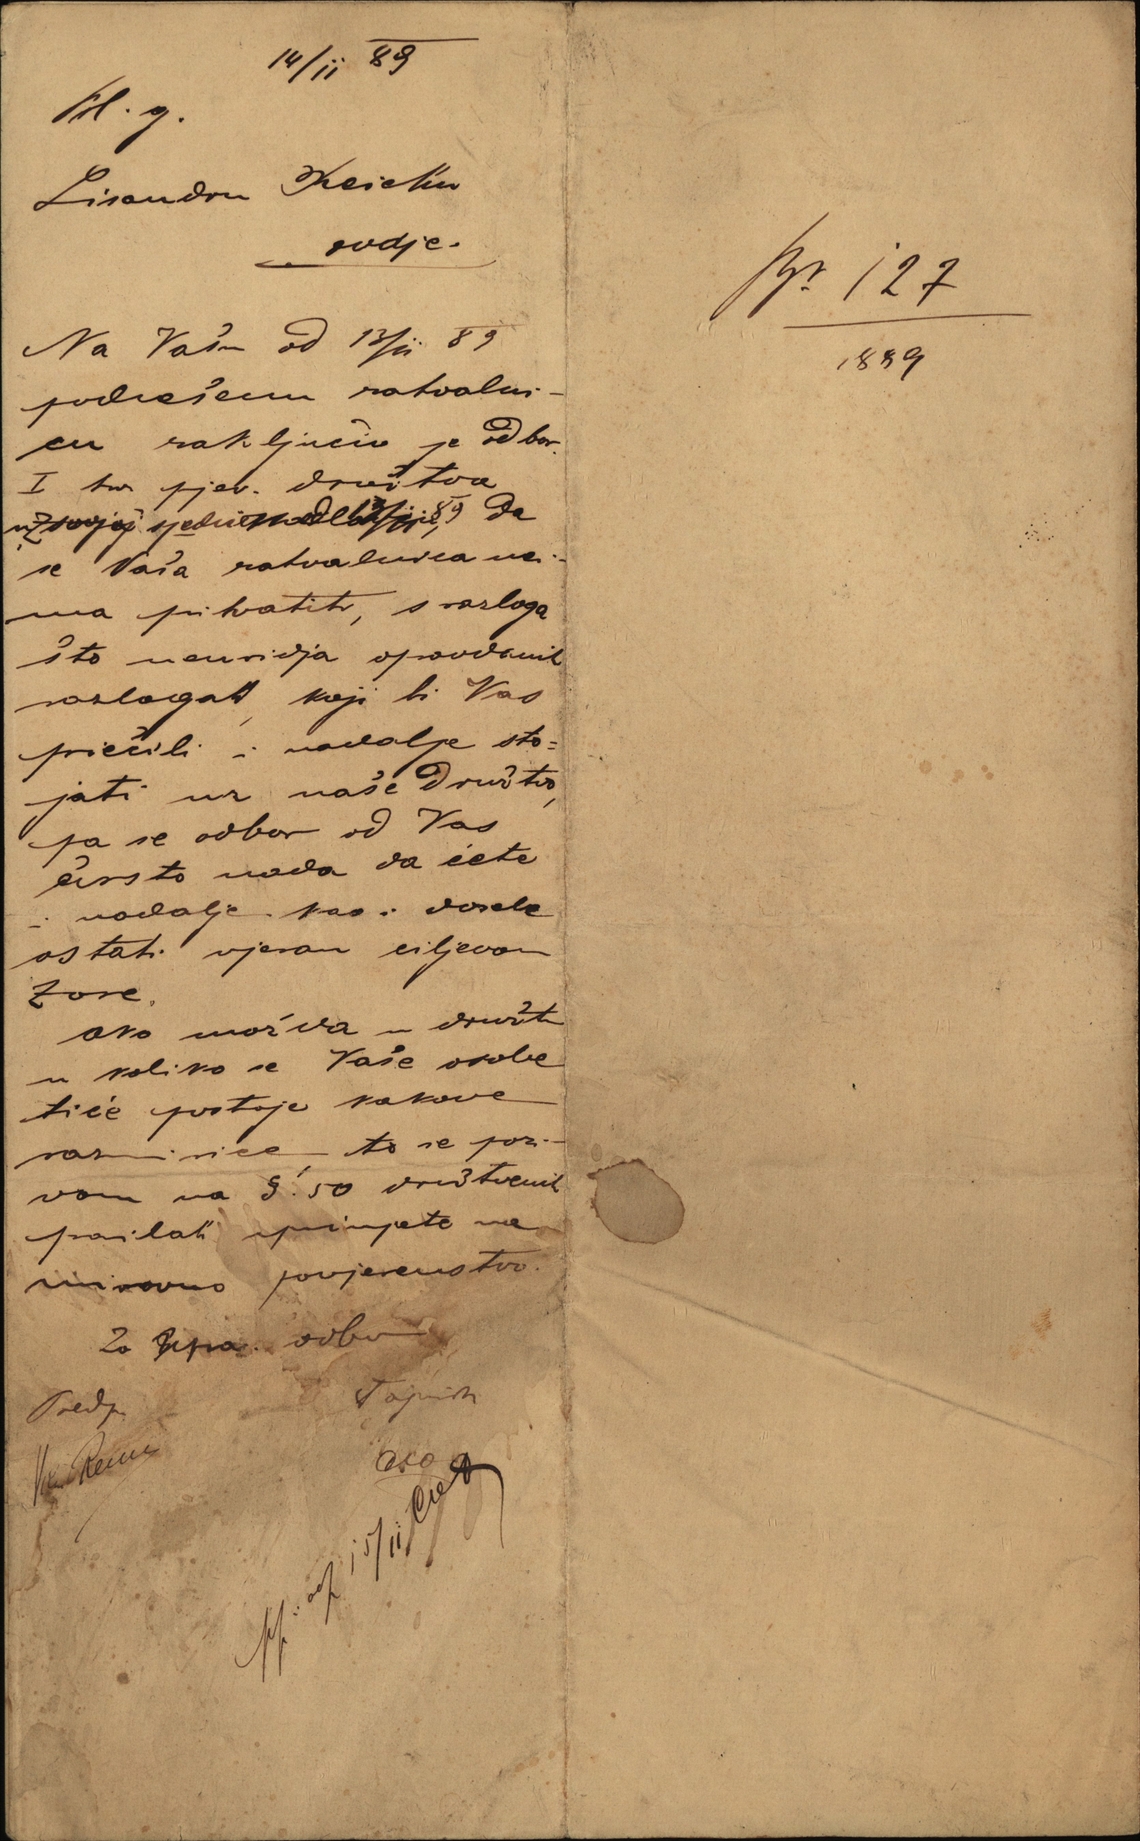 14/ii 89
Vel. g.
Lisandru Reichu
ovdje.
Na Vašu od 13/ii 89
podnešenu zahvalni-
cu zaključio je odbor
I hr. pjev. družtva
"Zore" 89 da
se Vaša zahvalnica nei-
ma prihvatiti, s razloga
što neuvidja opravdanih
razlogah, koji bi Vas
priečili i nadalje sto=
jati uz naše družtvo,
pa se odbor od Vas
čvrsto nada da ćete
i nadalje kao i dosele
ostati vjeran ciljevom
Zore.
Ako možda u družtvu
u koliko se Vaše osobe
tiče postoje kakove
razmirice to se pozi-
vom na §. 50 družtvenih
pravilah uputjete na
mirovno povjerenstvo.
Za upra. odbor
Predsj. Tajnik
odp. 15/ii
Br. 127
1889